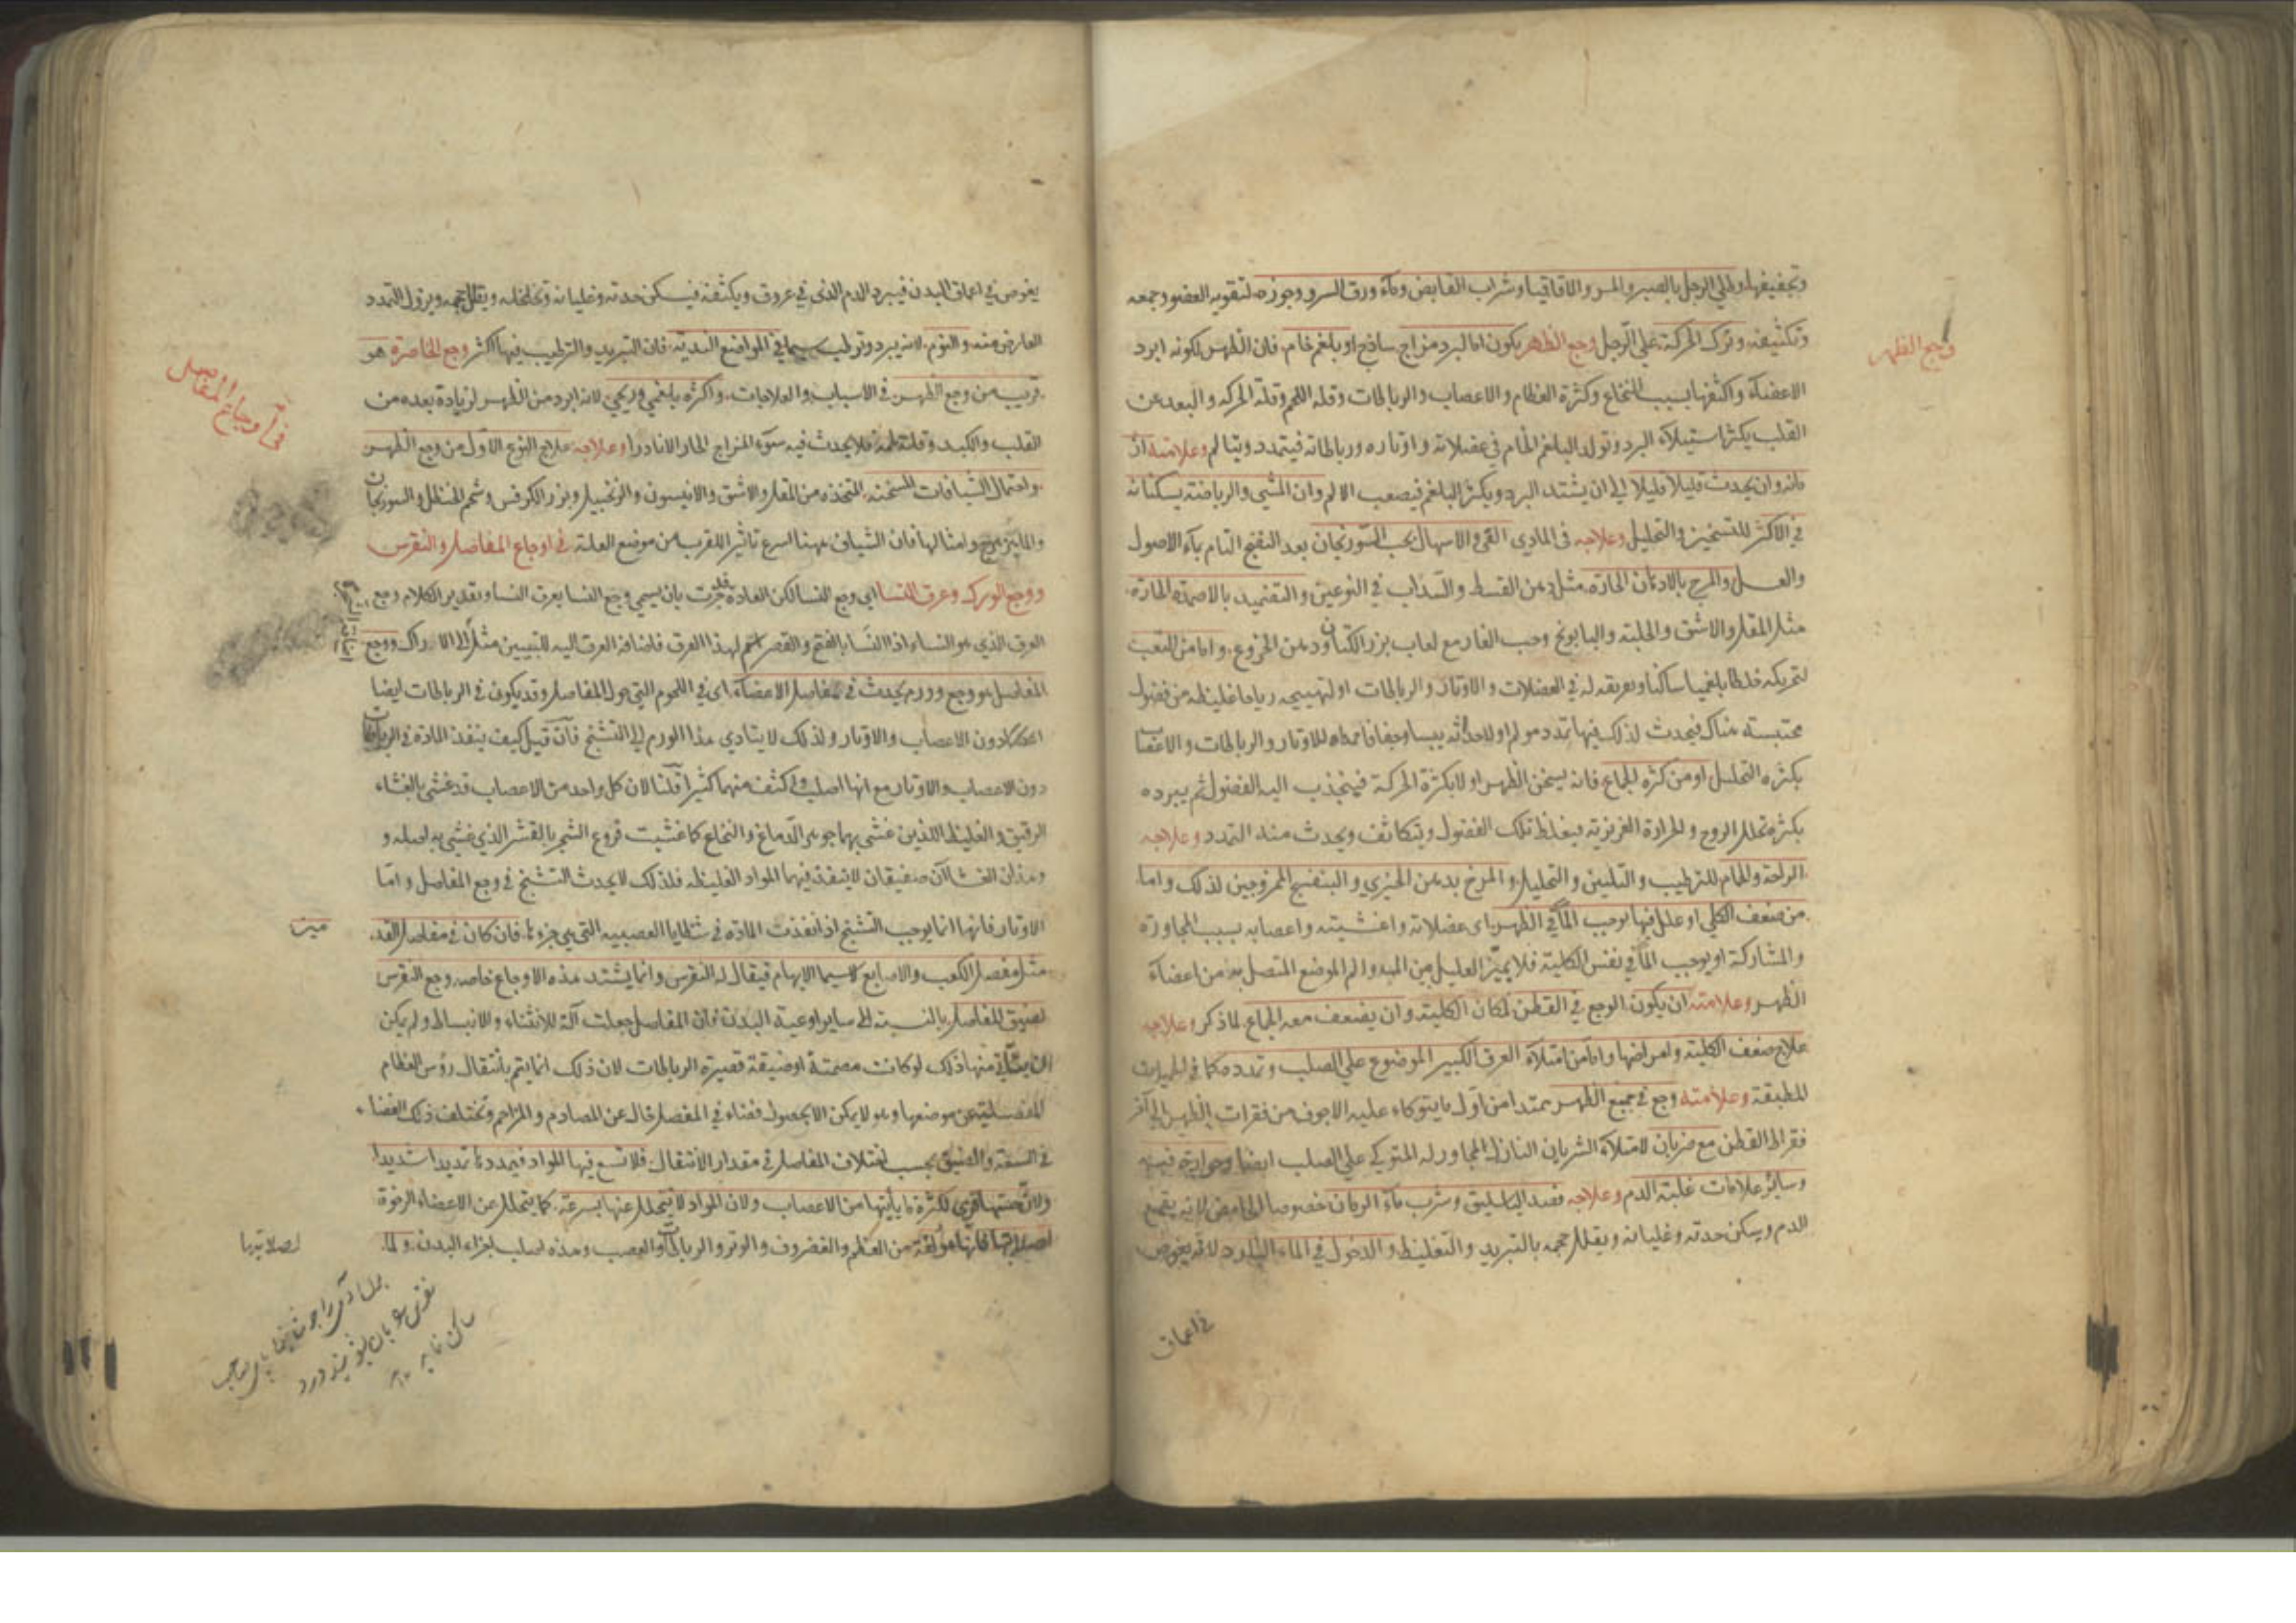 وجع الظهر
وتجفيفها وطلي الرجل بالصبر والمر والاقاقيا وشراب القابض وماء ورق السرو وجوزه لتقويه العضو وجمعه
وتكثيفه وترك الحركة علي الرجل وجع الظهر يكون اما لبرد مزاج ساذج او بلغم خام فان الظهر لكونه ابرد
الاعضاء واكثفها بسبب النخاع وكثرة العظام والاعصاب والرباطات وقله اللحم وقلة الحركه والبعد عن
القلب يكثر استيلاء البرد وتولد البلغم الخام في عضلاته واوتاره ورباطاته فيتمدد ويتالم وعلامته ان
فانه وان يحدث قليلا قليلا الي ان يشتد البرد ويكثر البلغم فيصعب الالم وان المشي والرياضة يسكنانه
في الاكثر للتسخين والتحليل وعلاجه في المادي القي والاسهال بحب السورنجان بعد النضج التام بماء الاصول
والعسل والمرخ بالادهان الحاره مثل دهن القسط والسذاب في النوعين والتضميد بالاضمدة الحارة
مثل المقل والاشق والحلبة والبابونج وحب الغار مع لعاب بزر الكتان ودهن الخروع واما من التعب
لتحريكه خلطا بلغميا ساكنا وتفريقه له في العضلات والاوتار والرباطات او لتهييجه رياحا غليظه من فضول
محتبسة هناك فيحدث لذلك فيها تمدد مولم او لاحداثه يبسا وجفافا ممدا للاوتار والرباطات والاعصاب
بكثره التحليل او من كثره الجماع فانه يسخن الظهر اولا بكثرة الحركة فيجذب اليه الفضول ثم يبرده
بكثرة تحلل الروح والحرارة الغريزية فيغلظ تلك الفضول ويتكاثف ويحدث منه التمدد وعلاجه
الراحة والحمام للترطيب والتليين والتحليل والمرخ بدهن الخيري والبنفسج الممزوجين لذلك واما
من ضعف الكلي او علل فيها توجب الما في الظهر اي عضلاته واغشيته واعصابه بسبب المجاورة
والمشاركة او يوجب الما في نفس الكلية فلا يميز العليل بين المبدا والم الموضع المتصل به من اعضاء
الظهر وعلامته ان يكون الوجع في القطن لمكان الكلية وان يضعف معه الجماع لما ذكر وعلاجه
علاج ضعف الكلية وامراضها واما من امتلاء العرق الكبير الموضوع علي الصلب وتمدده كما في الحميات
المطبقة وعلامته وجع في جميع الظهر ممتد امن اول ما يتوكاء عليه الاجوف من فقرات الظهر الي آخر
فقرات القطن مع ضربان لامتلاء الشريان النازل المجاور له المتوكي علي الصلب ايضا وحرارة فيه
وسائر علامات غلبة الدم وعلاجه فصد الباسليق وشرب ماء الرمان خصوصا الحامض لانه يقمع
الدم ويسكن حدته وغليانه ويقلل حجمه بالتبريد والتغليظ والدخول في الماء البارد لانه يغوص
في اعماق
يغوص في اعماق البدن فيبرد الدم الذي في عروق ويكثفه فيسكن حدته وغليانه وتخلخله ويقل حجمه ويزول التمدد
العارض منه والنوم لانه يبرد وترطيب سيما في المواضع الندية فان التبريد والترطيب فيها اكثر وجع الخاصرة هو
قريب من وجع الظهر في الاسباب والعلاجات واكثره بلغمي وريحي لانه ابرد من الظهر لزيادة بعده من
في اوجاع المفاصل
القلب والكبد وقلة لحمه فلا يحدث فيه سوء المزاج الحار الا نادرا وعلاجه علاج النوع الاول من وجع الظهر
واحتمال الشيافات المسخنة المتخذه من المقل والاشق والانيسون والزنجبيل وبزر الكرفس وشحم الحنظل والسورنجان
وامثالها فان الشياف ههنا اسرع تاثيرا للقرب من موضع العلة في اوجاع المفاصل والنقرس
ووجع الورك وعرق النسا اي وجع النسا لكن العادة قد جرت بان يسمي وجع النسا بعرق النسا وتقدير الكلام وجع
العرق الذي هو النساء اذا النسا بالفتح والقصر اسم لهذا العرق فاضافة العرق اليه للتبيين مثل الاراك ووجع
المفاصل هو وجع وورم يحدث في مفاصل الاعضاء اي في اللحوم التي حول المفاصل وقد يكون في الرباطات ايضا
دون الاعصاب والاوتار ولذلك لا يتادي هذا الورم الي التشنج فان قيل كيف ينفذ المادة في الرباطات
دون الاعصاب والاوتار مع انها اصلب واكثف منهما كثيرا قلنا لان كل واحد من الاعصاب قد غشي بالغشاء
الرقيق والغليظ اللذين غشي بهما جوهر الدماغ والنخاع كما غشيت فروع الشجر بالقشر الذي غشي به اصله و
وهذان الغشاآن صفيقان لا ينفذ فيهما المواد الغليظه فلذلك لا يحدث التشنج في وجع المفاصل واما
الاوتار فانها انما يوجب التشنج اذا نفذت المادة في شظايا العصبيه التي هي جزءها فان كان في مفاصل القدم
مثل مفصل الكعب والاصابع لا سيما الابهام فيقال له النقرس وانما يشتد هذه الاوجاع خاصه وجع النقرس
لضيق المفاصل بالنسبة الي ساير اوعية البدن فان المفاصل جعلت آلة للانثناء والانبساط ولم يكن
ان يتاتي منها ذلك لو كانت مصمتة او ضيقة قصيرة الرباطات لان ذلك انما يتم بانتقال رؤس العظام
المفصلية عن موضعها وهو لا يمكن الا بحصول فضاء في المفصل خال عن المصادم والمزاحم وتختلف ذلك الفضاء
في السعة والضيق بحسب اختلاف المفاصل في مقدار الانتقال فلا تسع فيها المواد فيمددها تمديدا شديدا
ولان حسها قوي لكثرة ما يأتيها من الاعصاب ولان المواد لا يتحلل عنها بسرعة كما يتحلل عن الاعضاء الرخوة
لصلابتها فانها مؤلفة من العظم والغضروف والوتر والرباطات والعصب وهذه اصلب اجزاء البدن ولما
لصلابتها